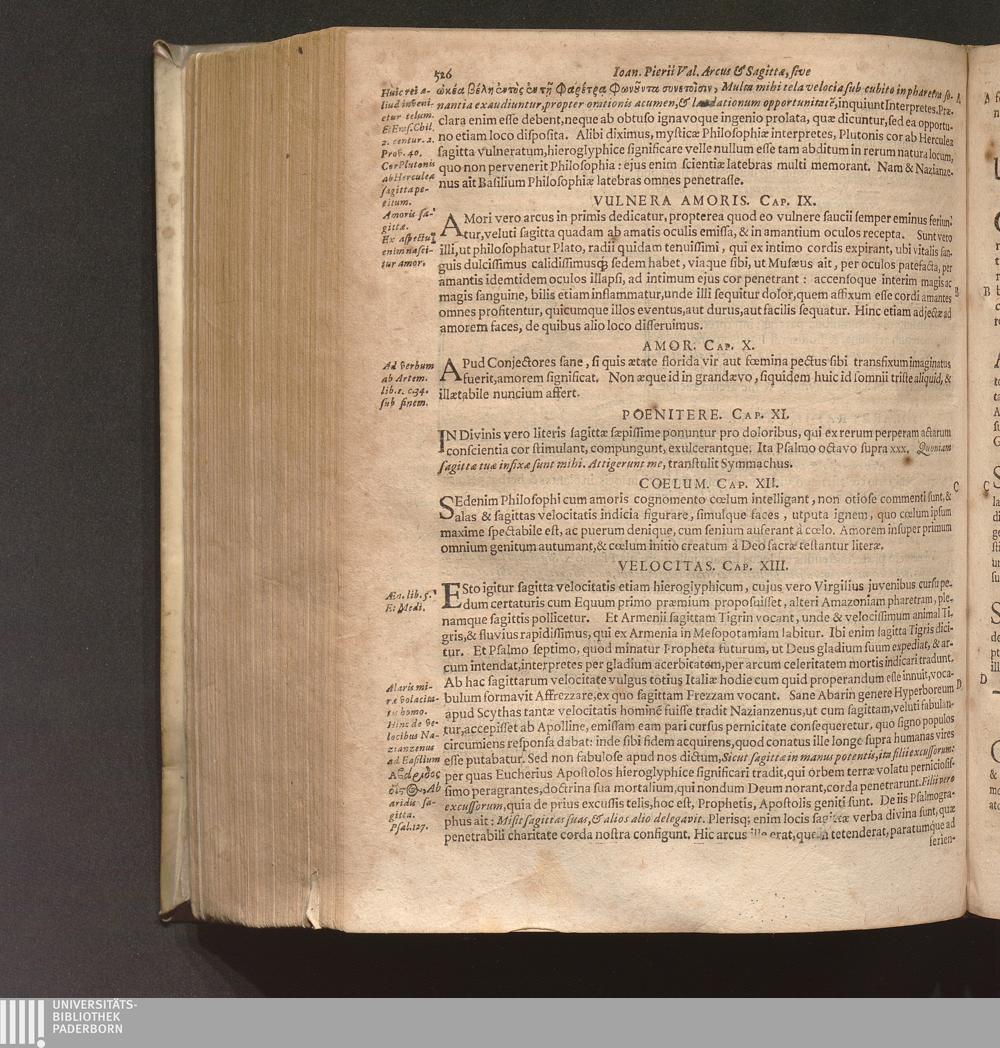 526
Ioan. Pierii Val. Arcus & Sagittæ, sive
ὠκέα βέλη ἐντὸς ἐν τῇ Φαρέτρᾳ Φωνοῦντα συνετοῖσιν, Multa mihi tela velocia sub cubito in pharetra so-
nantia exaudiuntur, propter orationis acumen, & laudationum opportunitatē, inquiunt Interpretes. Præ-
clara enim esse debent, neque ab obtuso ignavoque ingenio prolata, quæ dicuntur, sed ea opportu-
no etiam loco disposita. Alibi diximus, mysticæ Philosophiæ interpretes, Plutonis cor ab Herculea
sagitta vulneratum, hieroglyphice significare velle nullum esse tam abditum in rerum natura locum,
quo non pervenerit Philosophia: ejus enim scientiæ latebras multi memorant. Nam & Nazianze-
nus ait Basilium Philosophiæ latebras omnes penetrasse.
Huic rei a-
liud inveni-
etur telum.
Et Eras. Chil.
2. centur. 2.
Prov. 40.
Cor Plutonis
ab Herculea
sagitta pe-
titum.
A
VULNERA AMORIS. CAP. IX.
AMori vero arcus in primis dedicatur, propterea quod eo vulnere saucii semper eminus feriun-
tur, veluti sagitta quadam ab amatis oculis emissa, & in amantium oculos recepta. Sunt vero
illi, ut philosophatur Plato, radii quidam tenuissimi, qui ex intimo cordis expirant, ubi vitalis san-
guis dulcissimus calidissimusq; sedem habet, viaque sibi, ut Musæus ait, per oculos patefacta, per
amantis identidem oculos illapsi, ad intimum ejus cor penetrant: accensoque interim magis ac
magis sanguine, bilis etiam inflammatur, unde illi sequitur dolor, quem affixum esse cordi amantes
omnes profitentur, quicumque illos eventus, aut durus, aut facilis sequatur. Hinc etiam adjectæ ad
amorem faces, de quibus alio loco disseruimus.
Amoris sa-
gittæ.
Ex aspectu
enim nasci-
tur amor.
B
AMOR. CAP. X.
APud Conjectores sane, si quis ætate florida vir aut fœmina pectus sibi transfixum imaginatus
fuerit, amorem significat. Non æque id in grandævo, siquidem huic id somnii triste aliquid, &
illætabile nuncium affert.
Ad verbum
ab Artem.
lib. 2. c. 34.
sub finem.
POENITERE. CAP. XI.
IN Divinis vero literis sagittæ sæpissime ponuntur pro doloribus, qui ex rerum perperam actarum
conscientia cor stimulant, compungunt, exulcerantque. Ita Psalmo octavo supra xxx. Quoniam
sagittæ tuæ infixæ sunt mihi. Attigerunt me, transtulit Symmachus.
COELUM. CAP. XII.
SEdenim Philosophi cum amoris cognomento cœlum intelligant, non otiose commenti sunt, &
alas & sagittas velocitatis indicia figurare, simulque faces, utputa ignem, quo cœlum ipsum
maxime spectabile est, ac puerum denique, cum senium auferant à cœlo. Amorem insuper primum
omnium genitum autumant, & cœlum initio creatum à Deo sacræ testantur literæ.
C
VELOCITAS. CAP. XIII.
ESto igitur sagitta velocitatis etiam hieroglyphicum, cujus vero Virgilius juvenibus cursu pe-
dum certaturis cum Equum primo præmium proposuisset, alteri Amazoniam pharetram, ple-
namque sagittis pollicetur. Et Armenii sagittam Tigrin vocant, unde & velocissimum animal Ti-
gris, & fluvius rapidissimus, qui ex Armenia in Mesopotamiam labitur. Ibi enim sagitta Tigris dici-
tur. Et Psalmo septimo, quod minatur Propheta futurum, ut Deus gladium suum expediat, & ar-
cum intendat, interpretes per gladium acerbitatem, per arcum celeritatem mortis indicari tradunt.
Ab hac sagittarum velocitate vulgus totius Italiæ hodie cum quid properandum esse innuit, voca-
bulum formavit Affrezzare, ex quo sagittam Frezzam vocant. Sane Abarin genere Hyperboreum
apud Scythas tantæ velocitatis hominē fuisse tradit Nazianzenus, ut cum sagittam, veluti fabulan-
tur, accepisset ab Apolline, emissam eam pari cursus pernicitate consequeretur. quo signo populos
circumiens responsa dabat: inde sibi fidem acquirens, quod conatus ille longe supra humanas vires
esse putabatur. Sed non fabulose apud nos dictum, Sicut sagittæ in manus potentis, ita filii excussorum:
per quas Eucherius Apostolos hieroglyphice significari tradit, qui orbem terræ volatu perniciosis-
simo peragrantes, doctrina sua mortalium, qui nondum Deum norant, corda penetrarunt. Filii vero
excussorum, quia de prius excussis telis, hoc est, Prophetis, Apostolis geniti sunt. De iis Psalmogra-
phus ait: Misit sagittas suas, & alios alio delegavit. Plerisq; enim locis sagittæ verba divina sunt, quæ
penetrabili charitate corda nostra configunt. Hic arcus ille erat, quem tetenderat, paratumque ad
ferien-
Æn. lib. 5.
Et Medi.
Abaris mi-
ræ velocita-
tis homo.
Hinc de ve-
locibus Na-
zianzenus
ad Basilium
Ἀβάριδος
ὀϊστὸς, Ab
aridis sa-
gitta.
Psal. 127.
D
UNIVERSITÄTS-
BIBLIOTHEK
PADERBORN